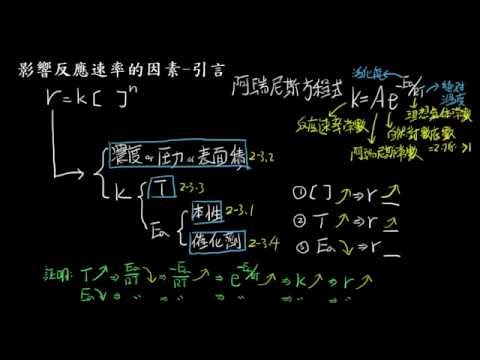 影響反應速率的因素-引言
r=k[ ]ⁿ
阿瑞尼斯方程式
活化能
k=Ae^(-Ea/RT)
絕對溫度
理想氣體常數
反應速率常數
自然對數底數
=2.718...>1
阿瑞尼斯常數
濃度 or 壓力 or 表面積 2-3.2
k
T 2-3.3
Ea
本性 2-3.1
催化劑 2-3.4
① [ ]↗⇒r
② T↗⇒r
③ Ea↘⇒r
證明: T↗⇒Ea/RT↘⇒-Ea/RT↗⇒e^(-Ea/RT)↗⇒k↗⇒r↗
Ea↘⇒ " ⇒ " ⇒ " ⇒ " ⇒ "